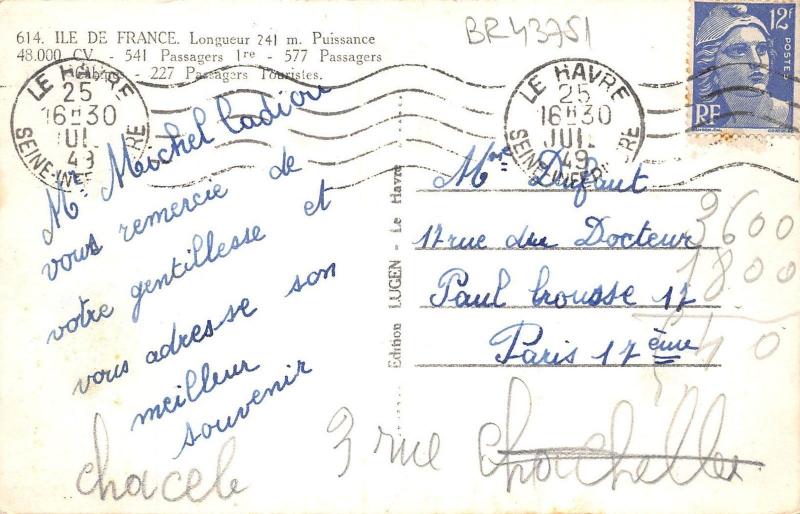 BR43751
614. ILE DE FRANCE. Longueur 241 m. Puissance
48.000 CV. - 541 Passagers 1re - 577 Passagers
Cabine - 227 Passagers Touristes.
LE HAVRE
25
16H30
JUIL
49
SEINE-INFERIEURE
LE HAVRE
25
16H30
JUIL
49
SEINE-INFERIEURE
12F
POSTES
RF
Mr Michel
vous remercie de
votre gentillesse et
vous adresse son
meilleur
souvenir
Edition LUGEN - Le Havre
Dufaut
17 rue du Docteur
Paul Brousse 17
Paris 17 ème
3600
1800
3 rue